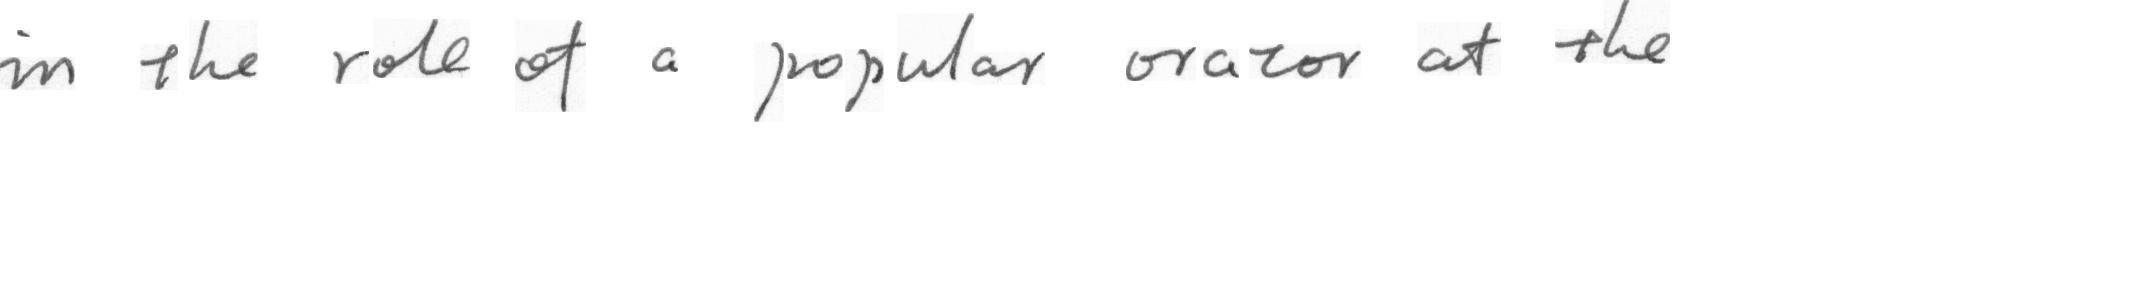 in the role of a popular orator at the